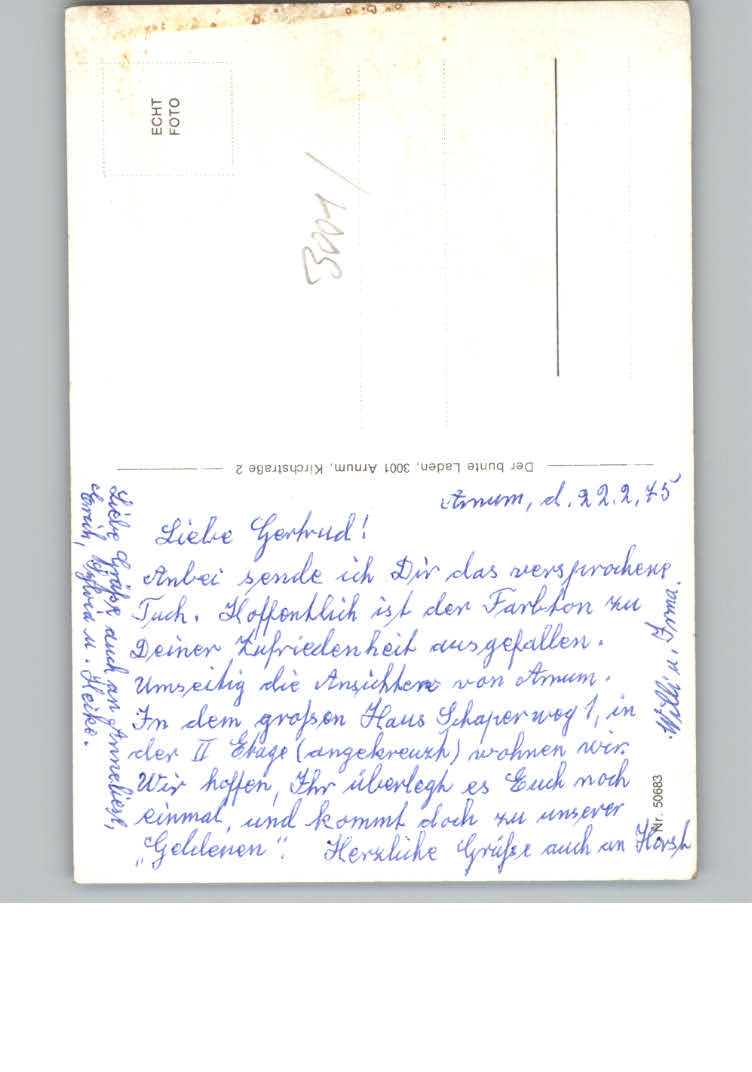 ECHT
FOTO
3001
Der bunte Laden, 3001 Arnum, Kirchstraße 2
Arnum, d. 22.2.75
Liebe Gertrud!
Anbei sende ich Dir das versprochene
Tuch. Hoffentlich ist der Farbton zu
Deiner Zufriedenheit ausgefallen.
Umseitig die Ansichten von Arnum.
In dem großen Haus Schaperweg 1, in
der II Etage (angekreuzt) wohnen wir.
Wir hoffen, Ihr überlegt es Euch noch
einmal, und kommt doch zu unserer
„Goldenen". Herzliche Grüße auch an Horst
Willi u. Irma.
Liebe Grüße auch an Anneliese,
Erich, Sylvia u. Heiko.
Nr. 50683